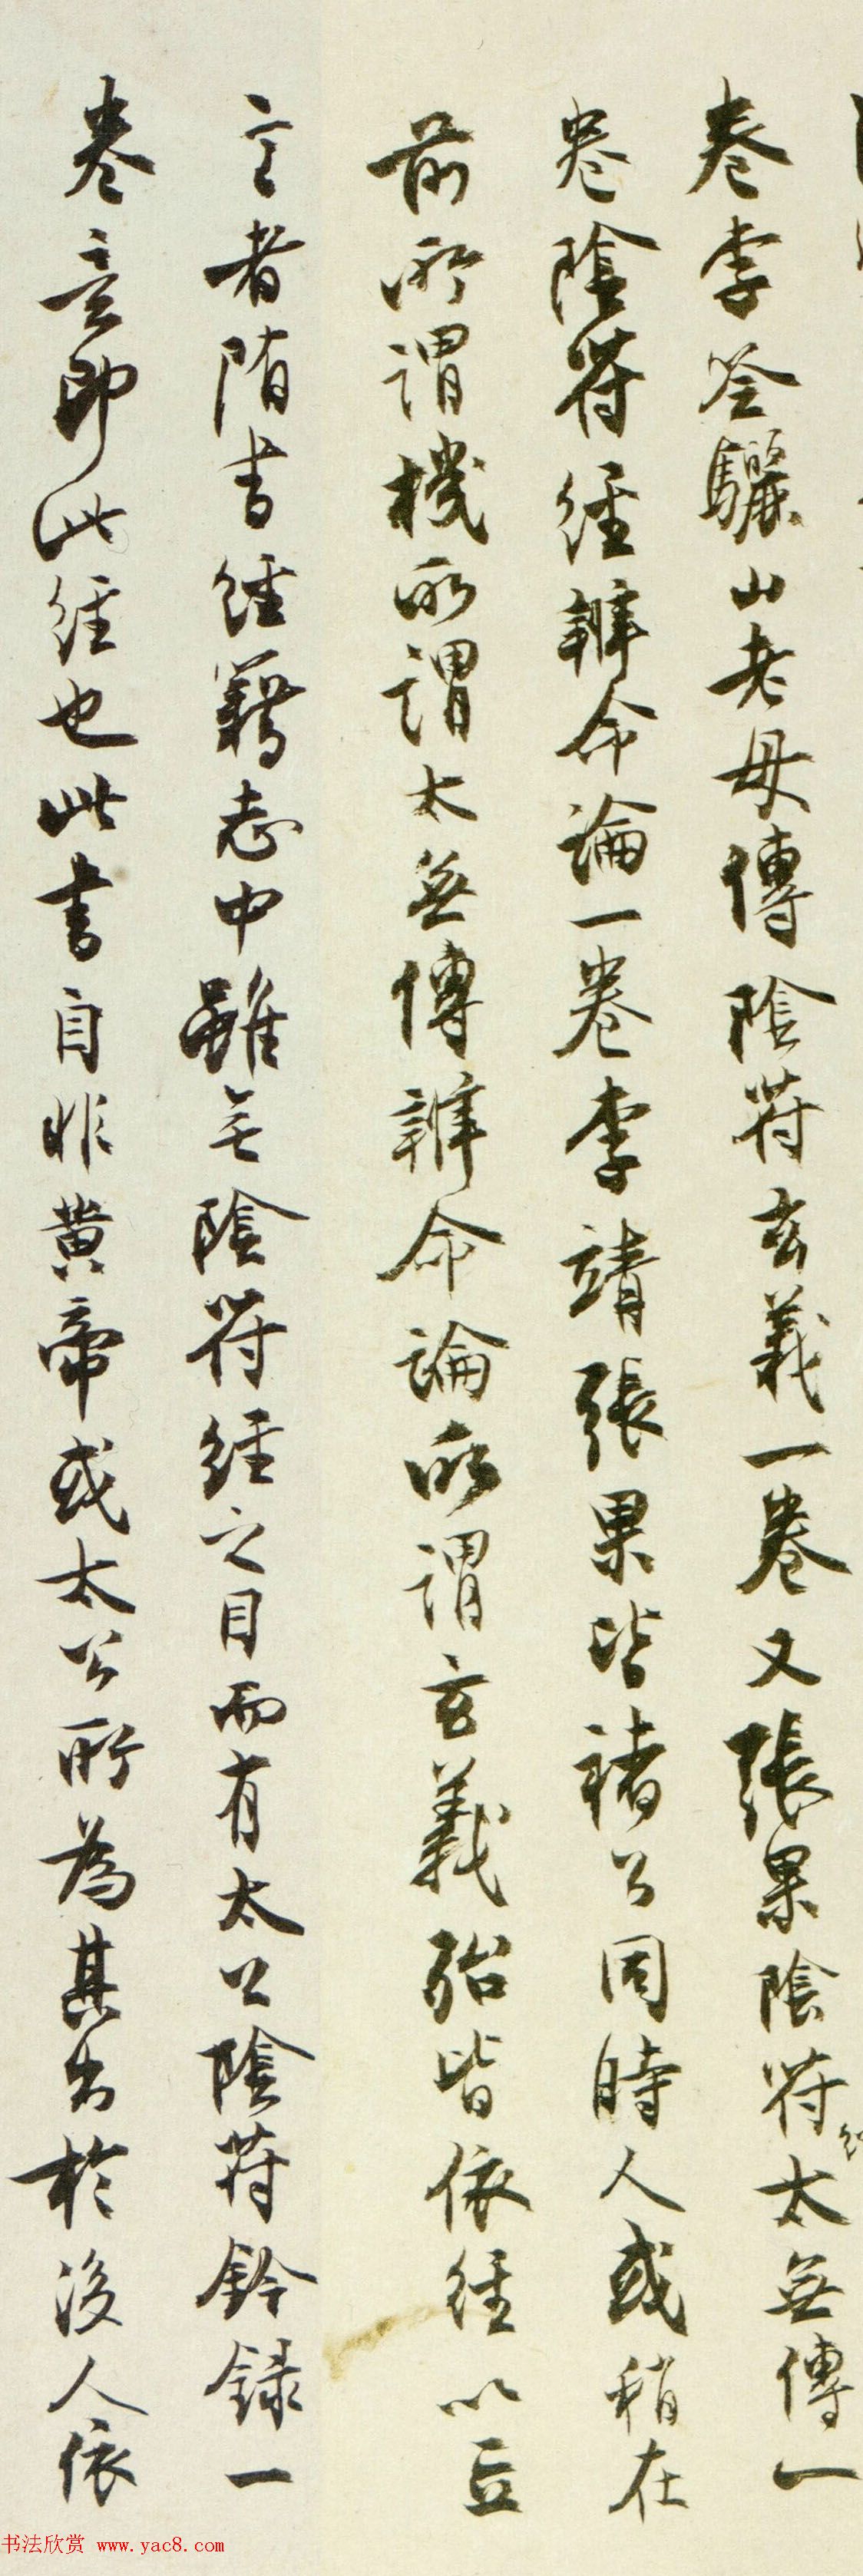 卷李筌驪山老母傳陰符玄義一卷又張果陰符太無傳一
經
卷陰符經辨命論一卷李靖張果皆褚公同時人或稍在
前所謂機所謂太無傳辨命論所謂玄義殆皆依經以立
言者隋書經籍志中雖無陰符經之目而有太公陰符鈐錄一
卷意即此經也此書自非黃帝或太公所為其出於後人依
书法欣赏 www.yac8.com